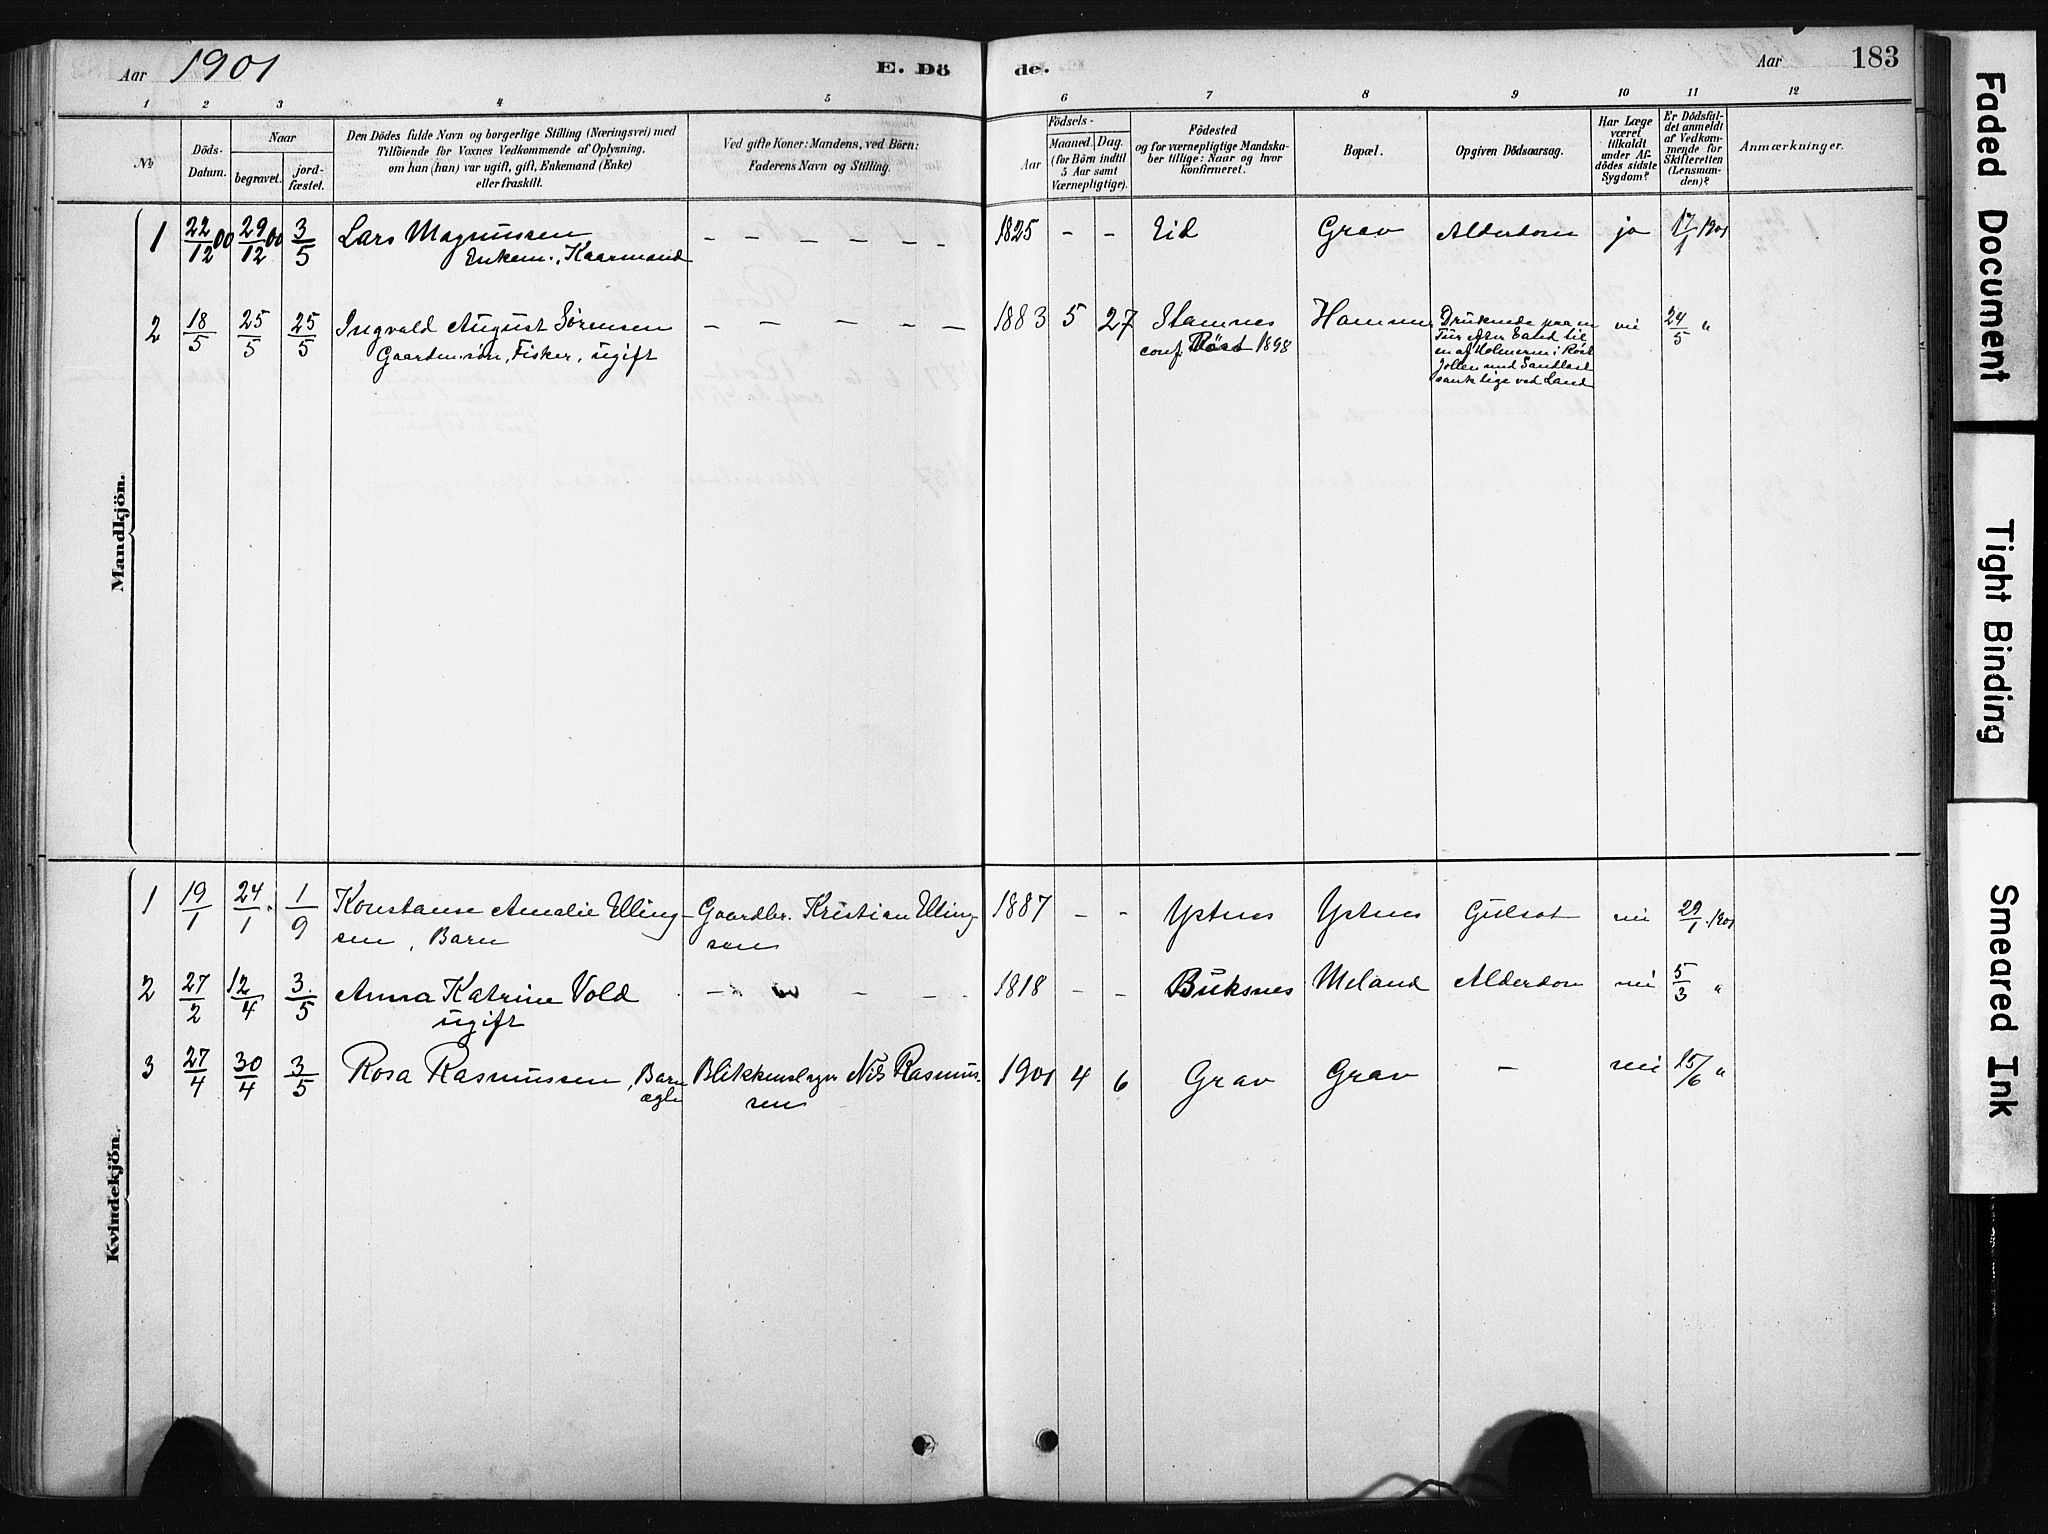 Aar 1901
E. Dö
de.
Aar
183
1 2 3 4 5 6 7 8 9 10 11 12
No
Döds-
Datum.
Naar
begravet.
jord-
fæstet.
Den Dödes fulde Navn og borgerlige Stilling (Næringsvei) med
Tilföiende for Voxnes Vedkommende af Oplysning,
om han (hun) var ugift, gift, Enkemand (Enke)
eller fraskilt.
Ved gifte Koner: Mandens, ved Börn:
Faderens Navn og Stilling.
Födsels-
Aar
Maaned. Dag.
(for Börn indtil
5 Aar samt
Værnepligtige).
Födested
og for værnepligtige Mandska-
ber tillige: Naar og hvor
konfirmeret.
Bopæl.
Opgiven Dödsaarsag.
Har Læge
været
tilkaldt
under Af-
dödes sidste
Sygdom?
Er Dödsfal-
det anmeldt
af Vedkom-
mende for
Skifteretten
(Lensman-
den)?
Anmærkninger.
Mandkjön.
1 22/12 00 29/12 00 3/5 Lars Magnussen – – – – – – 1825 – – Eid Grav Alderdom ja 17/1 1901
Enkem., Kaarmand
2 18/5 25/5 25/5 Ingvald August Sörensen – – – – – 1883 5 27 Stamnes Hammer Druknede paa en nei 24/5 "
Gaardmsön, Fisker, ugift conf. Röst 1898 Tur efter Sand til
en af Holmerne i Röst
Jollen med Sandlast
sank lige ved Land
Kvindekjön.
1 19/1 24/1 1/9 Konstanse Amalie Elling- Gaardbr. Kristian Elling- 1887 – – Ystnes Ystnes Gulsot nei 29/1 1901
sen, Barn sen
2 27/2 12/4 3/5 Anna Katrine Vold – – – – 1818 – – Buksnes Meland Alderdom nei 5/3 "
ugift
3 27/4 30/4 3/5 Rosa Rasmussen, Barn Blikkenslager Nils Rasmus- 1901 4 6 Grav Grav – nei 15/6 "
ægte sen
Faded Document
Tight Binding
Smeared Ink